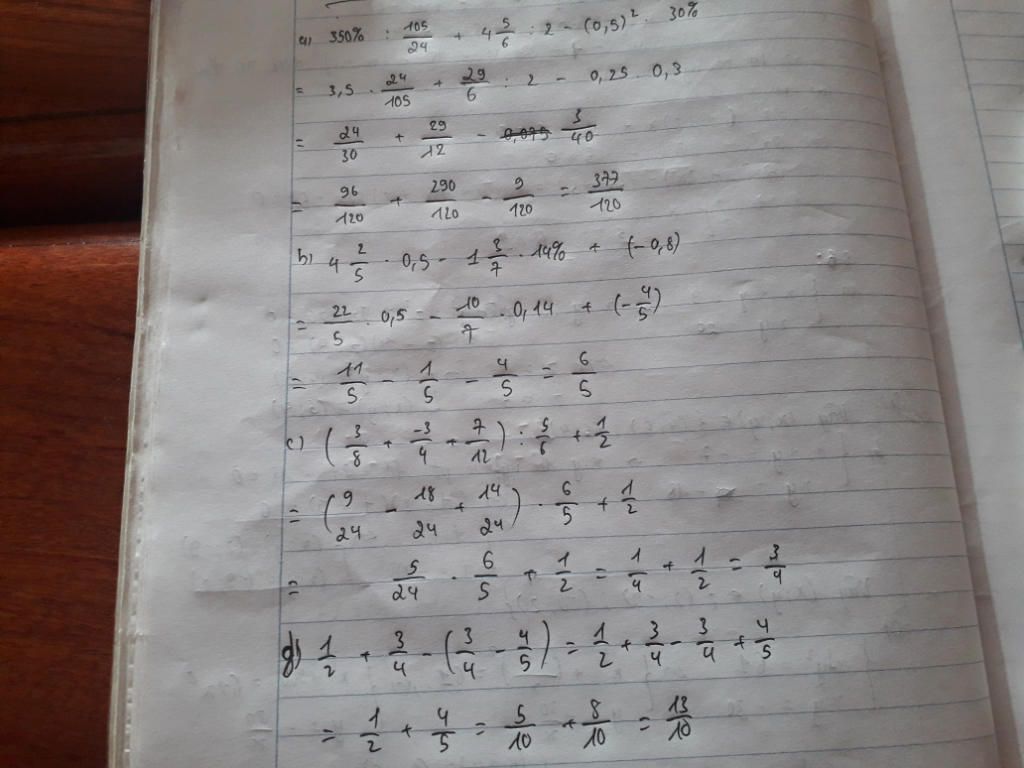 a) 350% : 105/24 + 4 5/6 : 2 - (0,5)² . 30%
= 3,5 . 24/105 + 29/6 : 2 - 0,25 . 0,3
= 24/30 + 29/12 - 0,075 3/40
= 96/120 + 290/120 - 9/120 = 377/120
b) 4 2/5 . 0,5 - 1 3/7 . 14% + (-0,8)
= 22/5 . 0,5 - 10/7 . 0,14 + (-4/5)
= 11/5 - 1/5 - 4/5 = 6/5
c) (3/8 + -3/4 + 7/12) : 5/6 + 1/2
= (9/24 - 18/24 + 14/24) . 6/5 + 1/2
= 5/24 . 6/5 + 1/2 = 1/4 + 1/2 = 3/4
d) 1/2 + 3/4 - (3/4 - 4/5) = 1/2 + 3/4 - 3/4 + 4/5
= 1/2 + 4/5 = 5/10 + 8/10 = 13/10